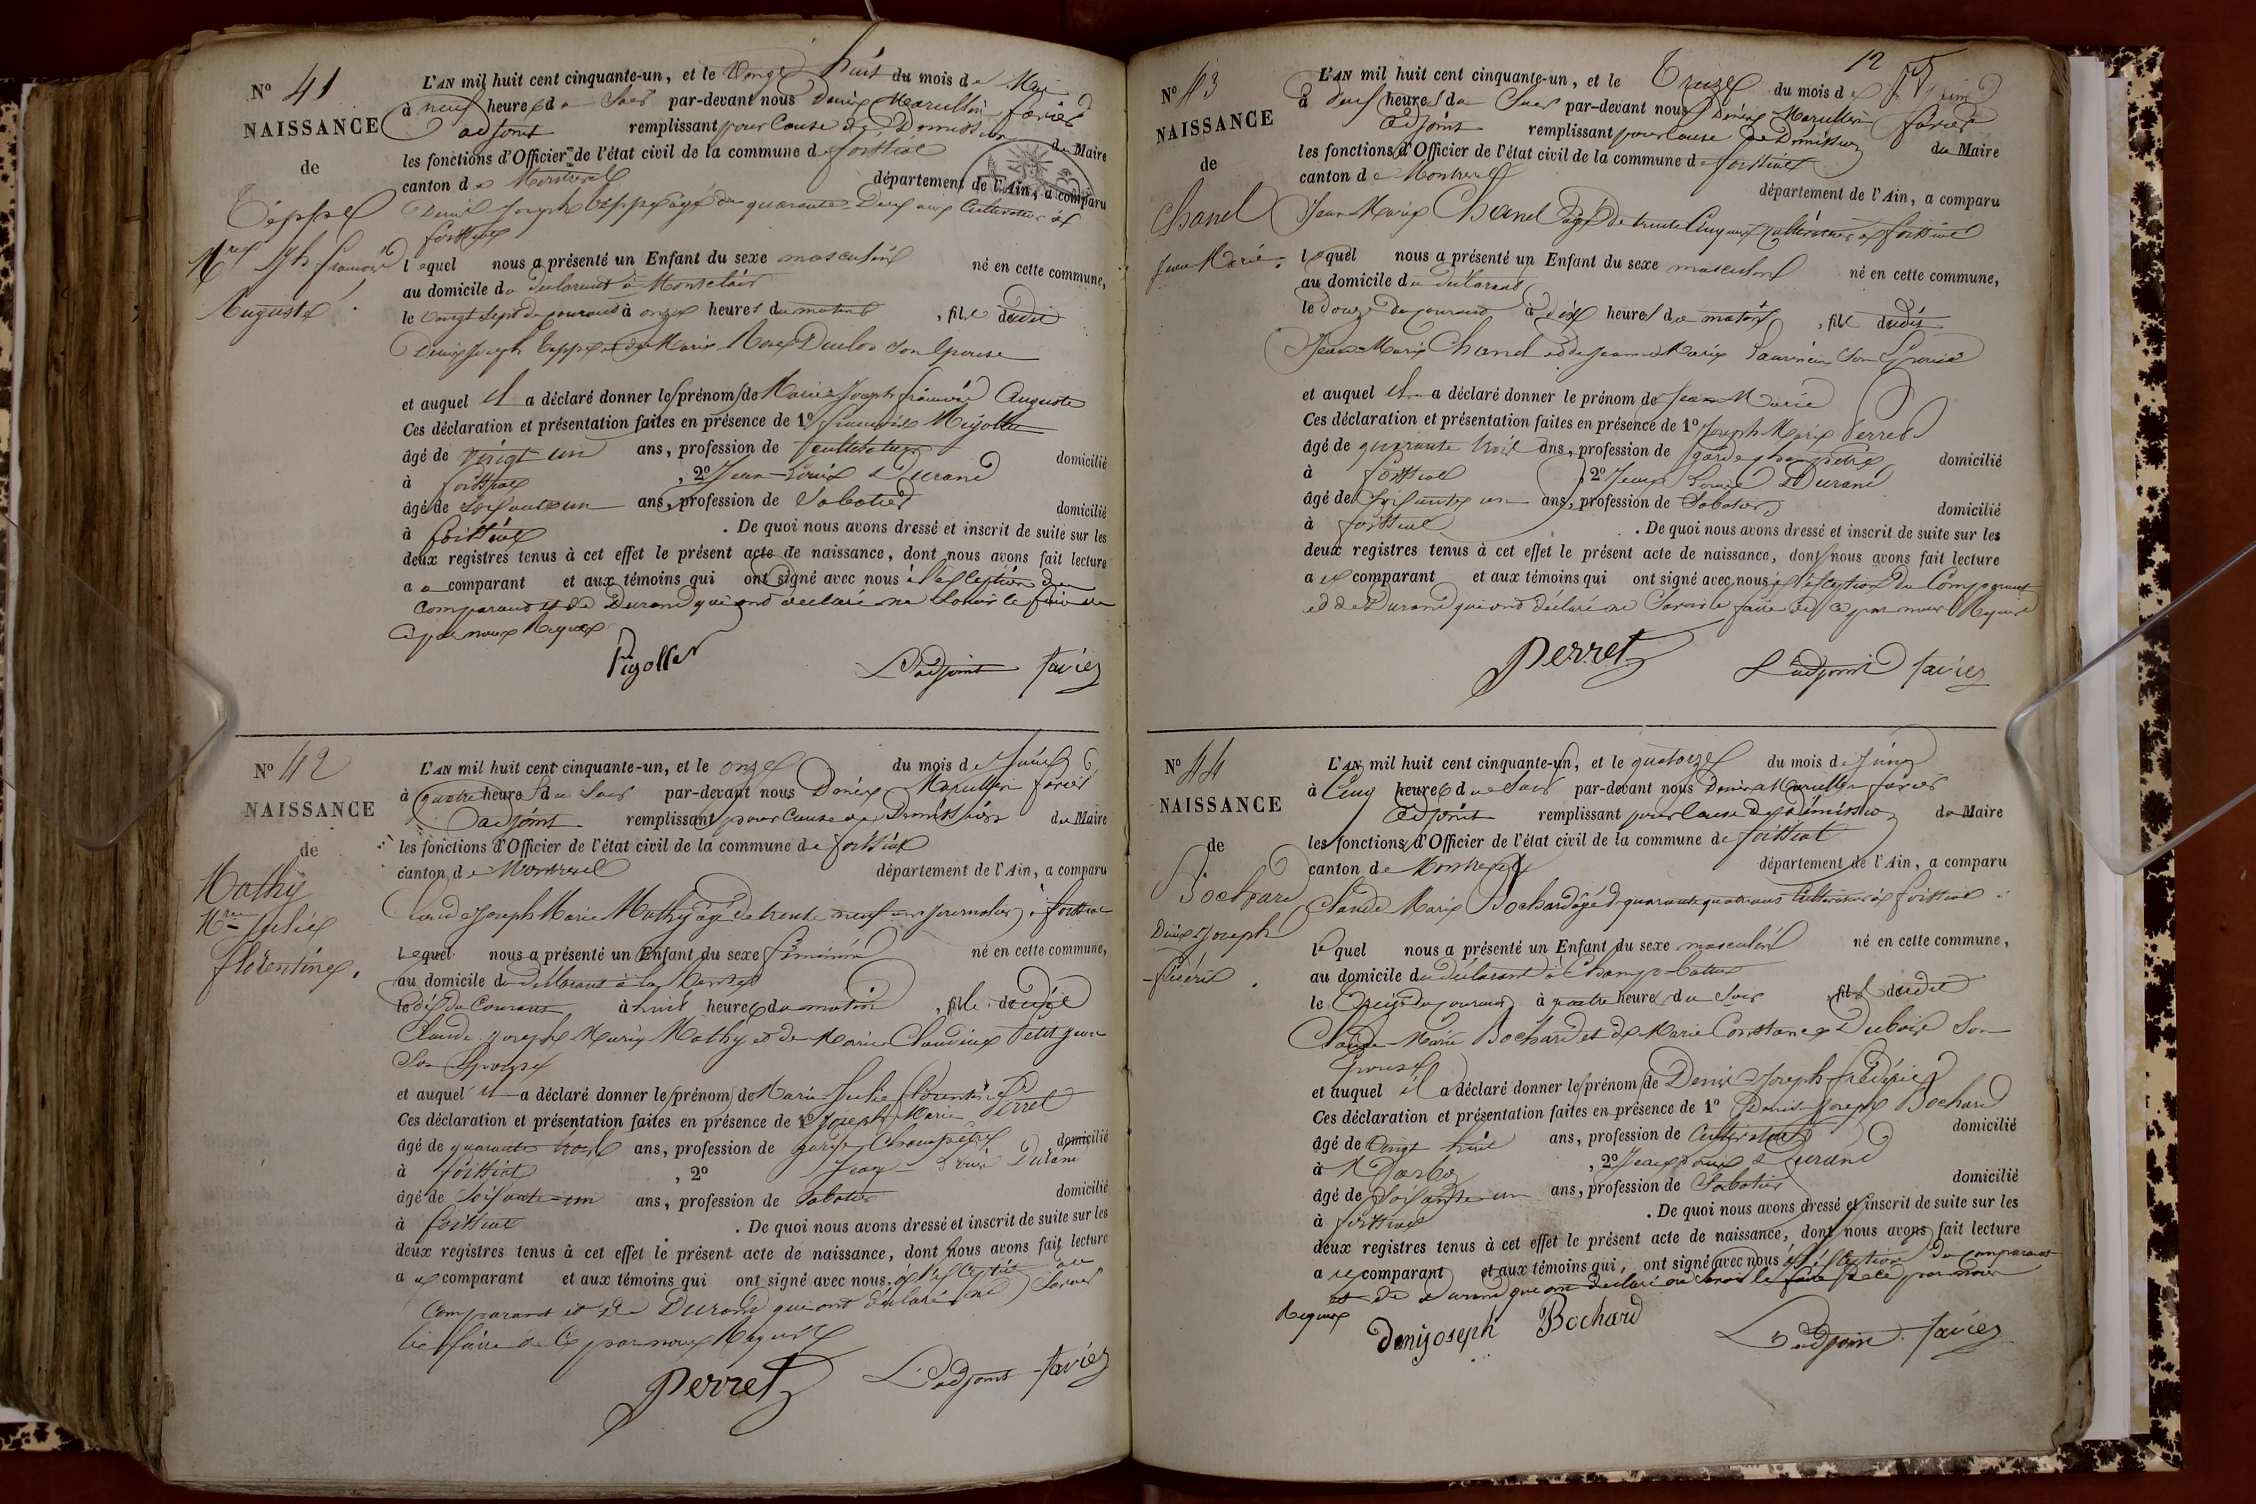 N° 41
NAISSANCE
de
Teppe
Mie Jh françois
Auguste
L'AN mil huit cent cinquante-un, et le Vingt huit du mois de Mai
à neuf heures du Soir par-devant nous Denis Marcellin favier
adjoint remplissant pour Cause de Démission du Maire
les fonctions d'Officier de l'état civil de la commune de foissiat
canton de Montrevel département de l'Ain, a comparu
Denis Joseph Teppe agé de quarante Deux ans Cultivateur à
foissiat
lequel nous a présenté un Enfant du sexe masculin né en cette commune,
au domicile du Déclarant à Montclair
le Vingt Sept du courant à onze heures du matin, fils dudit
Denis Joseph Teppe et de Marie Rose Duclos Son Epouse
et auquel il a déclaré donner les prénoms de Marie Joseph françois Auguste
Ces déclaration et présentation faites en présence de 1°
âgé de vingt un ans, profession de domicilié
à foissiat, 2° Jean Louis Durand
âgé de Soixante un ans, profession de Sabotier domicilié
à foissiat. De quoi nous avons dressé et inscrit de suite sur les
deux registres tenus à cet effet le présent acte de naissance, dont nous avons fait lecture
au comparant et aux témoins qui ont signé avec nous à l'exception du
comparant et de Durand qui ont déclaré ne Savoir le faire de
ce par nous Requis
L'adjoint favier
N° 42
NAISSANCE
de
Mathy
Mie Julie
florentine.
L'AN mil huit cent cinquante-un, et le onze du mois de Juin
à quatre heures du Soir par-devant nous Denis Marcellin favier
adjoint remplissant pour Cause de Démission du Maire
les fonctions d'Officier de l'état civil de la commune de foissiat
canton de Montrevel département de l'Ain, a comparu
Claude Joseph Marie Mathy agé de trente neuf ans Journalier à foissiat
Lequel nous a présenté un Enfant du sexe féminin né en cette commune,
au domicile du déclarant à la
le dix du Courant à huit heures du matin, fille dudit
Claude Joseph Marie Mathy et de Marie Claudine Petitjean
Son Epouse
et auquel il a déclaré donner les prénoms de Marie Julie florentine
Ces déclaration et présentation faites en présence de 1° Joseph Marie Perret
âgé de quarante trois ans, profession de garde Champêtre domicilié
à foissiat, 2° Jean Louis Durand
âgé de Soixante un ans, profession de Sabotier domicilié
à foissiat. De quoi nous avons dressé et inscrit de suite sur les
deux registres tenus à cet effet le présent acte de naissance, dont nous avons fait lecture
au comparant et aux témoins qui ont signé avec nous à l'exception du
Comparant et de Durand qui ont déclaré ne Savoir
le faire de Ce par nous Requis
Perret L'adjoint favier
12
N° 43
NAISSANCE
de
Chanel
Jean Marie.
L'AN mil huit cent cinquante-un, et le Treize du mois de Juin
à deux heures du Soir par-devant nous Denis Marcellin favier
Adjoint remplissant pour cause de Démission du Maire
les fonctions d'Officier de l'état civil de la commune de foissiat
canton de Montrevel département de l'Ain, a comparu
Jean Marie Chanel agé de trente Cinq ans Cultivateur à foissiat
lequel nous a présenté un Enfant du sexe masculin né en cette commune,
au domicile du déclarant
le douze du courant à dix heures du matin, fils dudit
Jean Marie Chanel et de Jeanne Marie Sauvin Son Epouse
et auquel il a déclaré donner le prénom de Jean Marie
Ces déclaration et présentation faites en présence de 1° Joseph Marie Perret
âgé de quarante trois ans, profession de garde champêtre domicilié
à foissiat, 2° Jean Louis Durand
âgé de Soixante un ans, profession de Sabotier domicilié
à foissiat. De quoi nous avons dressé et inscrit de suite sur les
deux registres tenus à cet effet le présent acte de naissance, dont nous avons fait lecture
au comparant et aux témoins qui ont signé avec nous à l'exception du Comparant
et de Durand qui ont déclaré ne Savoir le faire de ce par nous Requis
Perret L'adjoint favier
N° 44
NAISSANCE
de
Bochard
Denis Joseph
fréderic.
L'AN mil huit cent cinquante-un, et le quatorze du mois de Juin
à Cinq heures du Soir par-devant nous Denis Marcellin favier
Adjoint remplissant pour Cause de Démission du Maire
les fonctions d'Officier de l'état civil de la commune de foissiat
canton de Montrevel département de l'Ain, a comparu
Claude Marie Bochard agé de quarante quatre ans Cultivateur à foissiat
lequel nous a présenté un Enfant du sexe masculin né en cette commune,
au domicile du déclarant à
le Treize du courant à quatre heures du Soir, fils dudit
Claude Marie Bochard et de Marie Constance Dubois Son
Epouse
et auquel il a déclaré donner les prénoms de Denis Joseph fréderic
Ces déclaration et présentation faites en présence de 1° Denis Joseph Bochard
âgé de Vingt huit ans, profession de Cultivateur domicilié
à, 2° Jean Louis Durand
âgé de Soixante un ans, profession de Sabotier domicilié
à foissiat. De quoi nous avons dressé et inscrit de suite sur les
deux registres tenus à cet effet le présent acte de naissance, dont nous avons fait lecture
au comparant et aux témoins qui ont signé avec nous à l'exception du comparant
et de Durand qui ont déclaré ne Savoir le faire de ce par nous
Requis
Denis joseph Bochard L'adjoint favier